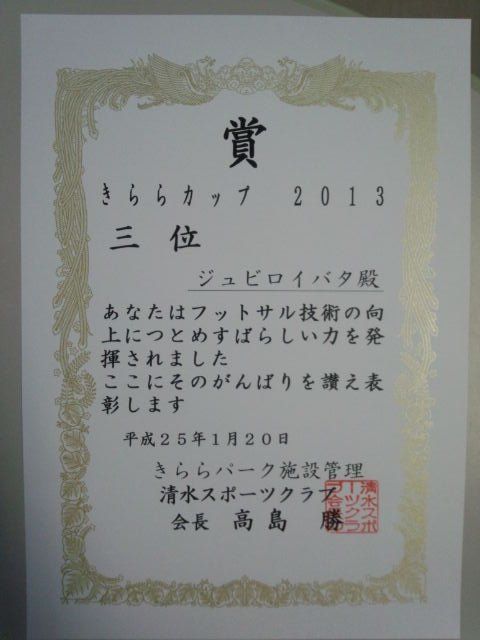 賞
きららカップ 2013
三位
ジュビロイバタ殿
あなたはフットサル技術の向
上につとめすばらしい力を発
揮されました
ここにそのがんばりを讃え表
彰します
平成25年1月20日
きららパーク施設管理
清水スポーツクラブ
会長 高島 勝
清水スポ
ーツクラ